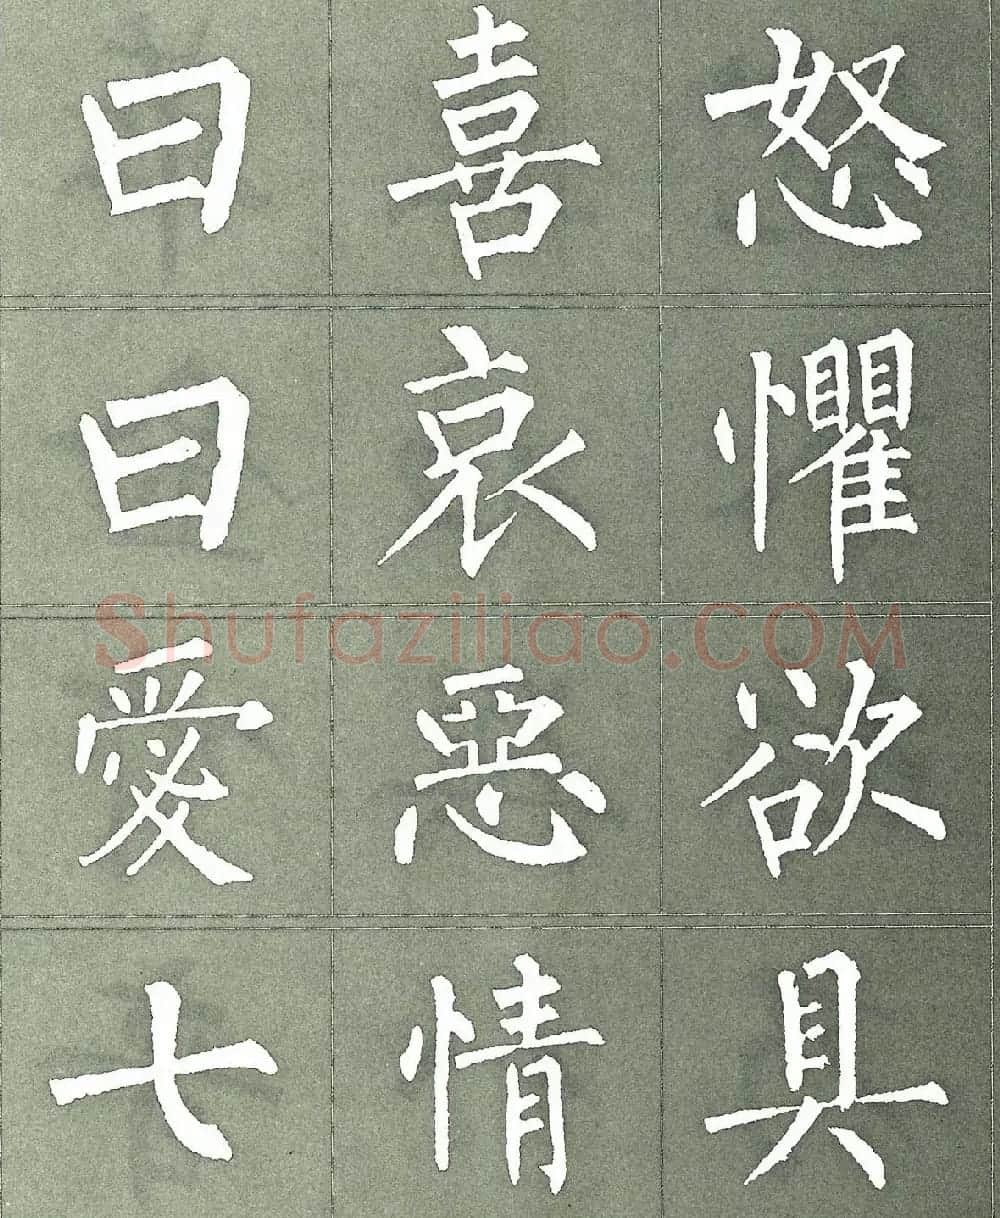 曰喜怒
曰哀懼
Shufaziliao.COM
愛惡欲
七情具